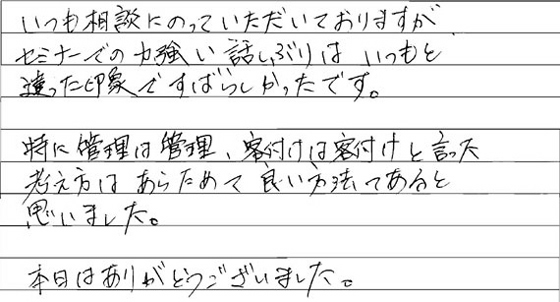 いつも相談にのっていただいておりますが
セミナーでの力強い話しぶりは いつもと
違った印象ですばらしかったです。
特に管理は管理、客付けは客付けと言った
考え方は あらためて 良い方法であると
思いました。
本日はありがとうございました。